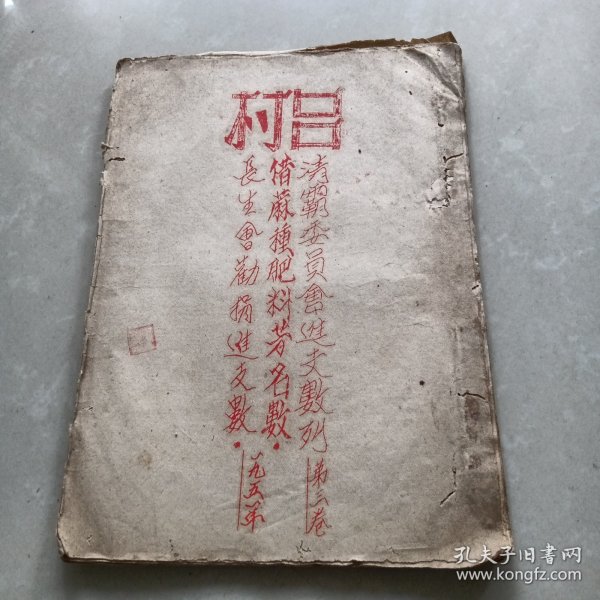 吕村
清霸委員會進支數列 第三卷
借蔴種肥料芳名數·
長生會勸捐進支數·一九五年
孔夫子旧書网
www.kongfz.com